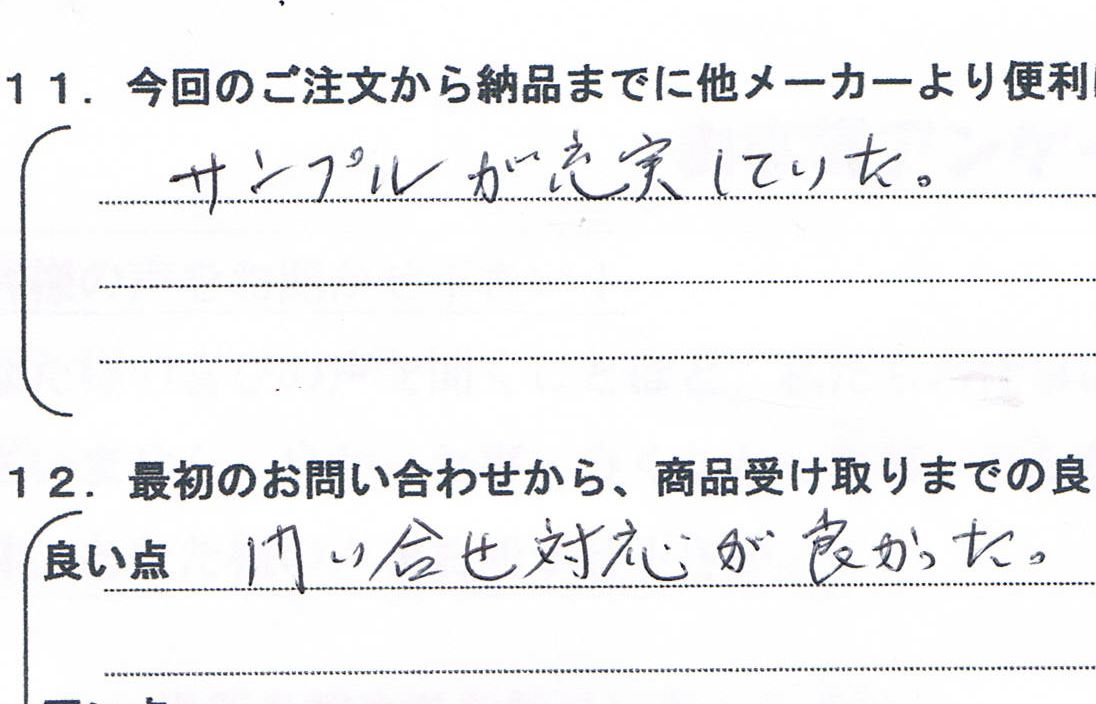 11．今回のご注文から納品までに他メーカーより便利
サンプルが充実していた。
12．最初のお問い合わせから、商品受け取りまでの良
良い点 問い合せ対応が良かった。